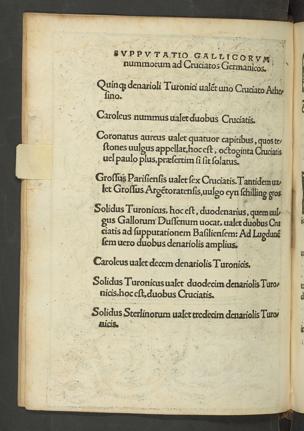 SVPPVTATIO GALLICORVM
nummorum ad Cruciatos Germanicos.
Quinq; denarioli Turonici ualẽt uno Cruciato Athe
sino.
Caroleus nummus ualet duobus Cruciatis.
Coronatus aureus ualet quatuor capitibus, quos te
stones uulgus appellat, hoc est, octoginta Cruciatis
uel paulo plus, præsertim si sit solatus.
Grossus Parisiensis ualet sex Cruciatis. Tantidem ua
let Grossus Argẽtoratensis, uulgo eyn schilling gros
Solidus Turonicus, hoc est, duodenarius, quem uul
gus Gallorum Dussenum uocat, ualet duobus Cru
ciatis ad supputationem Basiliensem: Ad Lugdunẽ
sem uero duobus denariolis amplius.
Caroleus ualet decem denariolis Turonicis.
Solidus Turonicus ualet duodecim denariolis Turo
nicis, hoc est, duobus Cruciatis.
Solidus Sterlinorum ualet tredecim denariolis Turo
nicis.